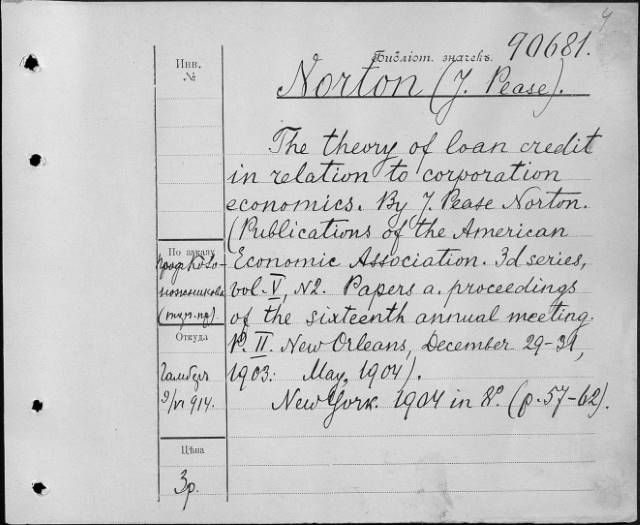 4
Инв.
№
Библіот. значекъ. 90681.
Norton (J. Pease).
The theory of loan credit
in relation to corporation
economics. By J. Pease Norton.
(Publications of the American
Economic Association. 3d series,
vol. V, N2. Papers a. proceedings
of the sixteenth annual meeting.
P. II. New Orleans, December 29-31,
1903: May, 1904).
New York. 1904 in 8º. (p. 57-62).
По заказу
Проф.
Откуда
9/VI 914.
Цѣна
3р.